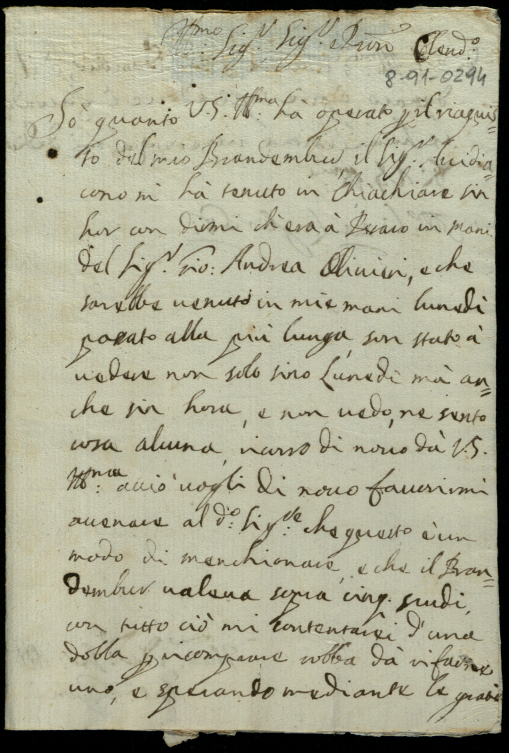 Illmo Sig.r Sig.r Pron Colend.o
8-91-0294
So quanto V.S. Ill.ma ha operato p il riaquis=
to del mio Brandemburr il Sig.r
cono mi hà tenuto in Chiachiare sin
hor con dirmi ch'era à Pesaro in mani
del Sig.r Gio: Andrea Olivieri, e che
sarebbe venuto in mie mani lunedi
passato alla più lunga, son stato à
vedere non solo sino Lunedi mà an=
che sin hora, e non vedo, ne sento
cosa alcuna, ricorro di novo dà V.S.
Ill.ma acciò vogli di novo favorirmi
al d.o Sig.re che questo è un
modo di menchionare, e che il Bran=
demburr valeva sopra cinq. scudi,
con tutto ciò mi contentarei d'una
dobla p ricomprare robba dà rifarne
uno, e sperando mediante le grazie